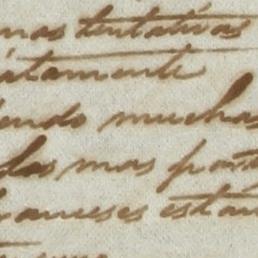 nas tentativas
átamente
endo muchas
das mas
franceses estan